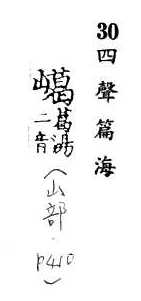 30 四聲篇海
嶱葛渴二音(山部.p410)